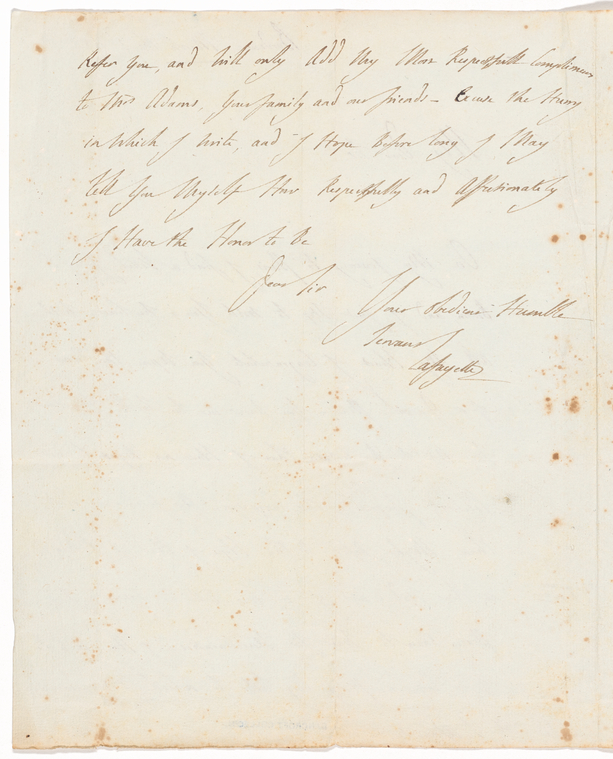 Refer You, and Will only Add My Most Respectfull Compliments
to Mrs Adams, Your family and our friends - Excuse the Hurry
in Which I write, and I Hope Before long I May
tell You Myself How Respectfully and Affectionately
I Have the Honor to Be
Dear Sir
Your obedient Humble
Servant
Lafayette